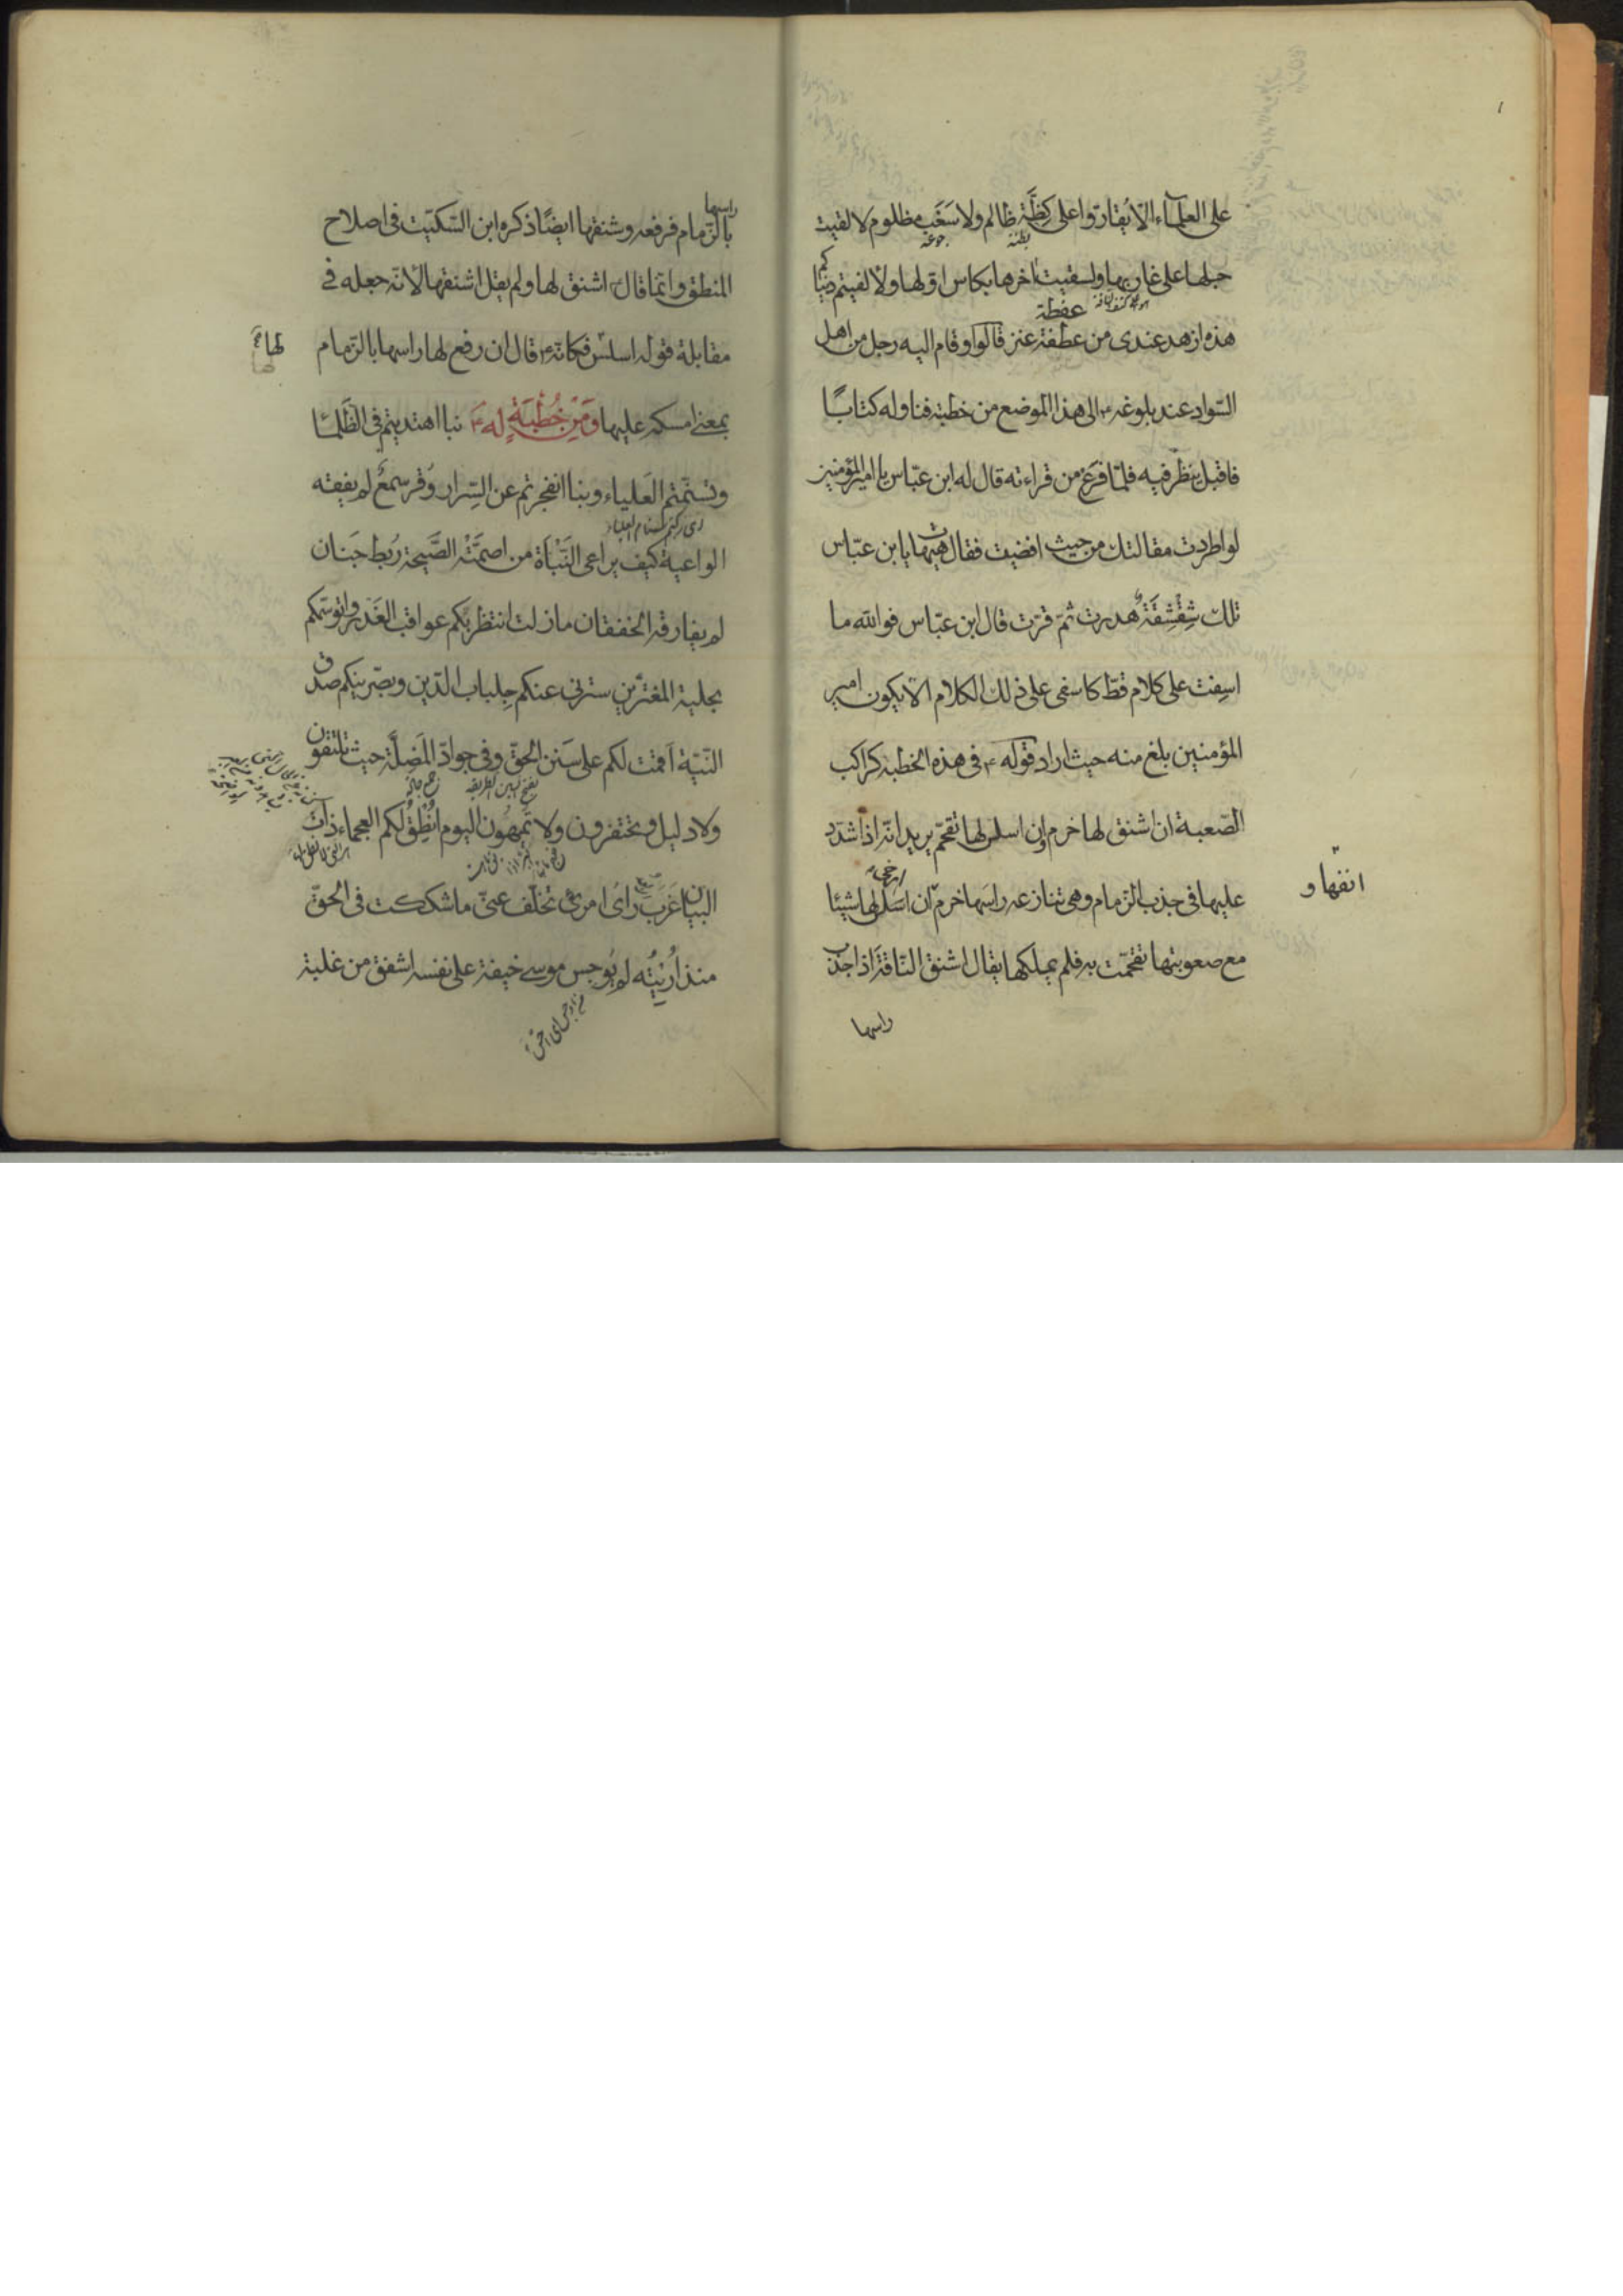 على العلمآء الّا يُقارّوا على كِظَّة ظالم ولا سَغَب مظلوم لالقيت
بطنه جوعه
حبلها على غاربها ولسقيت اخرها بكاس اوّلها ولألفيتم دنياكم
عفطة
هذه ازهد عندى من عطفة عنز قالوا وقام اليه رجل من اهل
السّواد عند بلوغه ع الى هذا الموضع من خطبته فناوله كتابًا
فاقبل ينظر فيه فلمّا فرغ من قراءته قال له ابن عبّاس يا امير المؤمنين
لو اطردت مقالتك من حيث افضيت فقال هيهات يا بن عبّاس
تلك شِقْشِقَةٌ هدرت ثمّ قرّت قال ابن عبّاس فوالله ما
اسِفت على كلام قطّ كاسفى على ذلك الكلام الّا يكون امير
المؤمنين بلغ منه حيث اراد قوله ع فى هذه الخطبة كراكب
الصّعبة ان اشنق لها خرم وان اسلس لها تقحّم يريد انّه اذا شدّد
عليها فى جذب الزّمام وهى تنازعه راسَها خرم ان اسلس لها شيئا
انفها و
مع صعوبتها تقحّمت به فلم يملكها يقال اشنق النّاقة اذا جذب
راسها
راسها
بالزّمام فرفعه وشنقها ايضًا ذكره ابن السّكّيت فى اصلاح
المنطق وانّما قال اشنق لها ولم يقل اشنقها لأنّه جعله فى
مقابلة قوله اسلس فكانّه ع قال ان رفع لها راسها بالزّمام
لها
بمعنى امسكه عليها وَمِنْ خُطْبَةٍ لهع نبا اهتديتم فى الظَّلمآ
وتسنّمتم العَلياء وبنا انفجرتم عن السِّرار وُقر سمعٌ لم يفقه
اى ركبتم سنام العلياء
الواعية كيف يراعى النَّبْأة من اصمَّتْه الصَّيحة رُبط جَنان
لم يفارقه الخفقان مازلت انتظر بكم عواقب الغَدر واتوسّمكم
بحلية المغترّين سترنى عنكم جِلباب الدّين وبصّرنيكم صدق
النّيّة اقمت لكم على سَنَن الحقّ وفى جوادّ المَضِلَّة حيث تلتقون
ولا دليل وتحتفرون ولا تُمِهُون اليوم اُنْطِقُ لكم العجماء ذات
البيان غَرَب رأىُ امرئ تخلّف عنّى ما شككت فى الحقّ
منذ اُرِيتُه لم يُوجس موسى خيفة على نفسه اشفق من غلبة